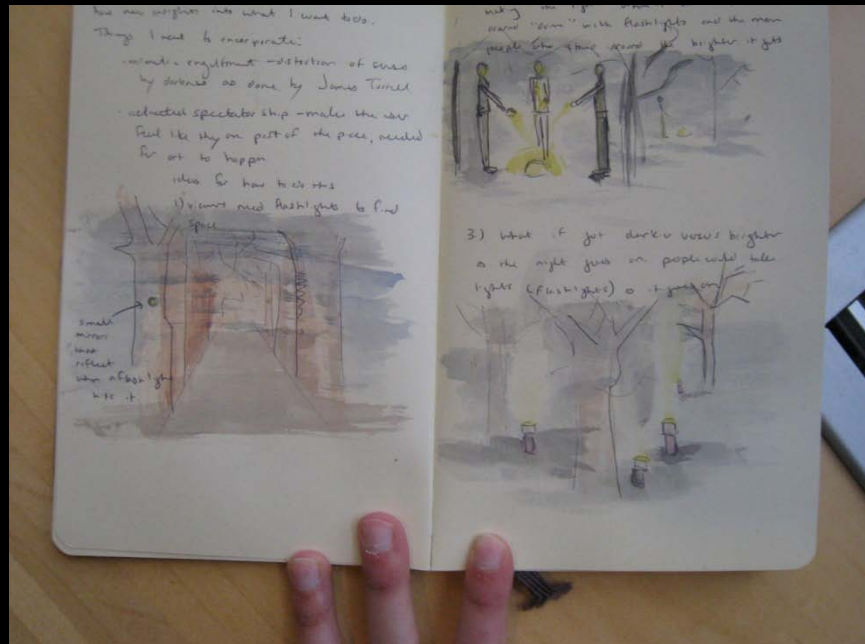 have new insights into what I want to do.
Things I want to incorporate:
engulfment - distortion of senses
by darkness as done by James Turrell
spectatorship - makes the viewer
feel like they are part of the piece, needed
for art to happen
ideas for how to do this
1) viewers need flashlights to find
space
small
mirror
that
reflect
when a flashlight
hits it
making the light
around with flashlights and the more
people who stand around the brighter it gets
3) What if got darker versus brighter
as the night goes on. people would take
lights (flashlights) as it goes on